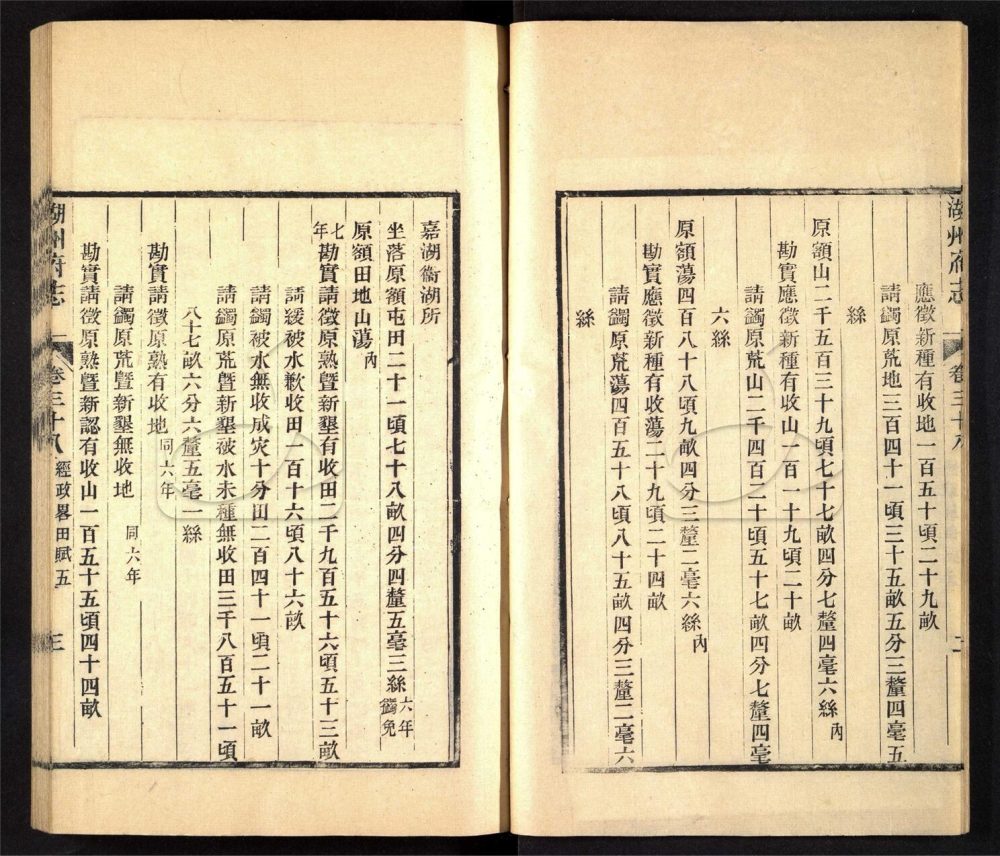 湖州府志 卷三十八 二
應徵新種有收地一百五十頃二十九畝
請蠲原荒地三百四十一頃三十五畝五分三釐四毫五
絲
原額山二千五百三十九頃七十七畝四分七釐四毫六絲內
勘實應徵新種有收山一百一十九頃二十畝
請蠲原荒山二千四百二十頃五十七畝四分七釐四毫
六絲
原額蕩四百八十八頃九畝四分三釐二毫六絲內
勘實應徵新種有收蕩二十九頃二十四畝
請蠲原荒蕩四百五十八頃八十五畝四分三釐二毫六
絲
嘉湖衞湖所
坐落原額屯田二十一頃七十八畝四分四釐五毫三絲六年蠲免
原額田地山蕩內
七年勘實請徵原熟曁新墾有收田二千九百五十六頃五十三畝
請緩被水歉收田一百十六頃八十六畝
請蠲被水無收成灾十分田二百四十一頃二十一畝
請蠲原荒曁新墾被水未種無收田三千八百五十一頃
八十七畝六分六釐五毫一絲
勘實請徵原熟有收地同六年
請蠲原荒曁新墾無收地同六年
勘實請徵原熟曁新認有收山一百五十五頃四十四畝
湖州府志 卷三十八 經政畧田賦五 三